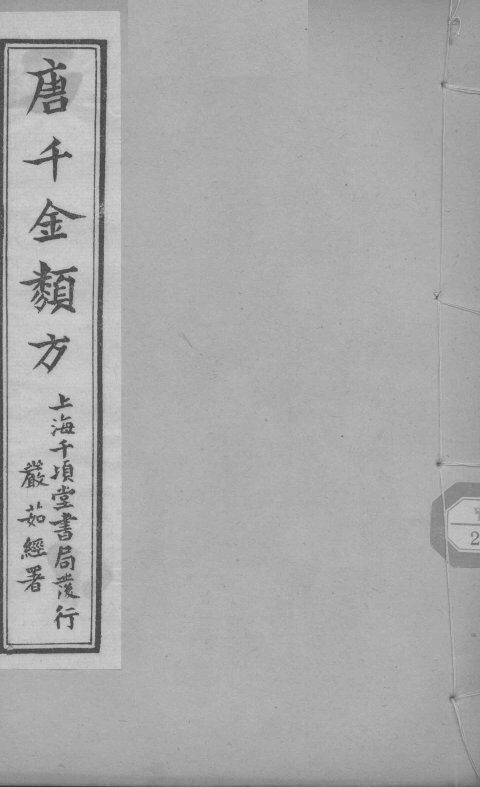 唐千金類方
上海千頃堂書局發行
嚴茹經署
2